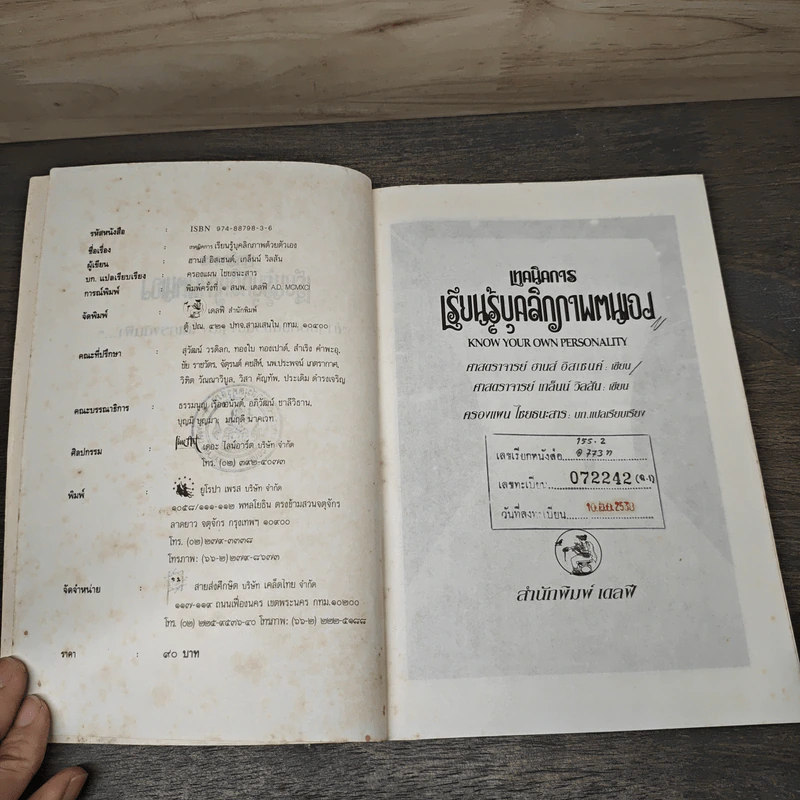 รหัสหนังสือ : ISBN 974-88798-3-6
ชื่อเรื่อง : เทคนิคการ เรียนรู้บุคลิกภาพด้วยตัวเอง
ผู้เขียน : ฮานส์ อิสเซนค์, เกล็นน์ วิลสัน
บก. แปลเรียบเรียง : ครองแผน ไชยธนะสาร
การณ์พิมพ์ : พิมพ์ครั้งที่ ๑ สนพ. เดลฟี A.D. MCMXCI
จัดพิมพ์ : เดลฟี สำนักพิมพ์
ตู้ ปณ. ๔๒๑ ปทจ.สามเสนใน กทม. ๑๐๔๐๐
คณะที่ปรึกษา : สุวัฒน์ วรดิลก, ทองใบ ทองเปาด์, สำเริง คำพะอุ,
ชัย ราชวัตร, จัตุรนต์ คชสีห์, นพ.ประพจน์ เภตรากาศ,
วิทิต วัณณาวิบูล, วิสา คัญทัพ, ประเดิม ดำรงเจริญ
คณะบรรณาธิการ : ธรรมนูญ เรืองนันต์, อภิวัฒน์ ชาลีวิธาน,
บุญมี บุญมา, มนฤดี นาคเวท
ศิลปกรรม : เดอะ ไลน์อาร์ต บริษัท จำกัด
โทร. (๐๒) ๓๙๒-๔๐๗๓
พิมพ์ : ยูโรปา เพรส บริษัท จำกัด
๑๐๕๘/๑๑๑-๑๑๒ พหลโยธิน ตรงข้ามสวนจตุจักร
ลาดยาว จตุจักร กรุงเทพฯ ๑๐๙๐๐
โทร. (๐๒)๒๗๙-๓๓๓๘
โทรภาพ: (๖๖-๒)๒๗๙-๘๖๗๓
จัดจำหน่าย : สายส่งศึกษิต บริษัท เคล็ดไทย จำกัด
๑๑๗-๑๑๙ ถนนเฟื่องนคร เขตพระนคร กทม.๑๐๒๐๐
โทร. (๐๒) ๒๒๕-๙๕๓๖-๔๐ โทรภาพ: (๖๖-๒) ๒๒๒-๕๑๘๘
ราคา : ๙๐ บาท
เทคนิคการ
เรียนรู้บุคลิกภาพตนเอง
KNOW YOUR OWN PERSONALITY
ศาสตราจารย์ ฮานส์ อิสเซนค์ : เขียน
ศาสตราจารย์ เกล็นน์ วิลสัน : เขียน
ครองแผน ไชยธนะสาร : บก.แปลเรียบเรียง
155.2
เลขเรียกหนังสือ อ 773 ท
เลขทะเบียน 072242 (ฉ.1)
วันที่ลงทะเบียน
สำนักพิมพ์ เดลฟี